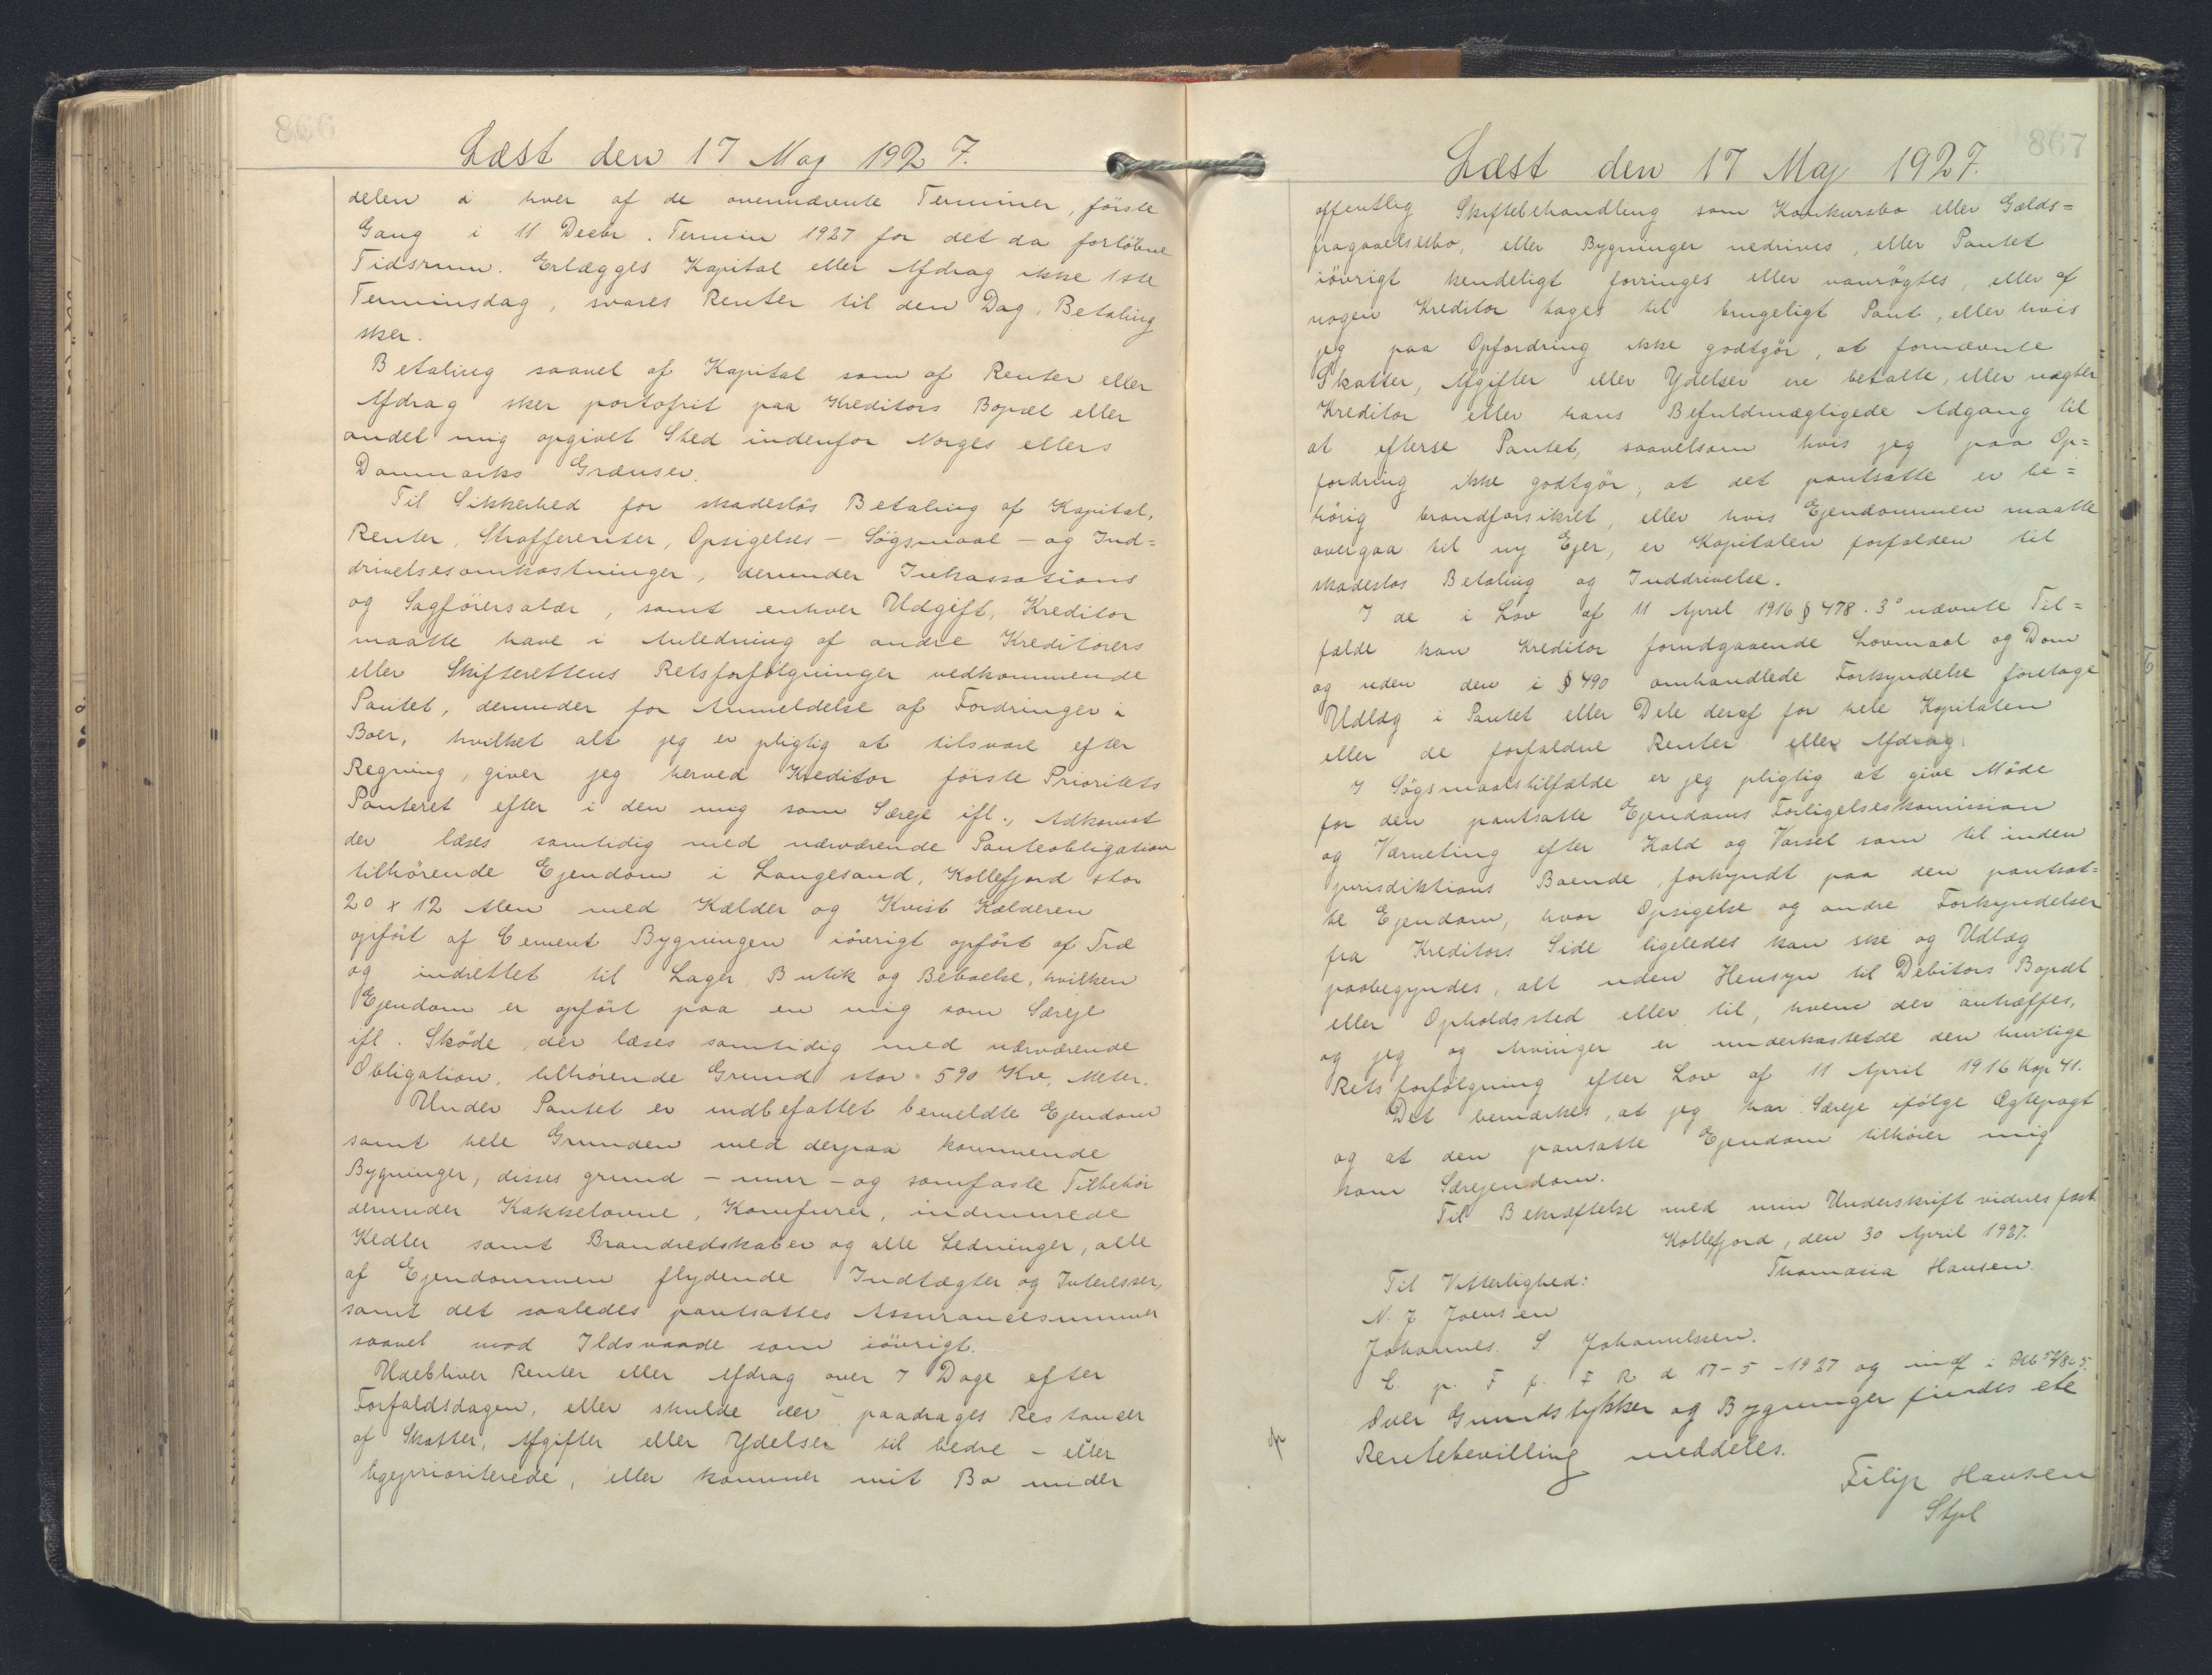 866
Læst den 17 Maj 1927.
delen i hver af de ovennævnte Terminer, förste
Gang i 11 Decbr. Termin 1927 for det da forlöbne
Tidsrum. Erlægges Kapital eller Afdrag ikke 1ste
Terminsdag, svares Renter til den Dag, Betaling
sker.
Betaling saavel af Kapital som af Renter eller
Afdrag sker portofrit paa Kreditors Bopæl eller
andet mig opgivet Sted indenfor Norges ellers
Danmarks Grænser.
Til Sikkerhed for skadeslös Betaling af Kapital,
Renter, Strafferenter, Opsigelses- Sögsmaal- og Ind=
drivelsesomkostninger, derunder Inkassations
og Sagförersalær, samt enhver Udgift, Kreditor
maatte have i Anledning af andre Kreditorers
eller Skifterettens Retsforfölgninger vedkommende
Pantet, derunder for Anmeldelse af Fordringer i
Boer, hvilket alt jeg er pligtig at tilsvare efter
Regning, giver jeg herved Kreditor förste Prioritets
Panteret efter i den mig som Særeje ifl., Adkomst
der læses samtidig med nærværende Panteobligation
tilhörende Ejendom i Langesand, Kollefjord stor
20 x 12 Alen med Kælder og Kvist Kælderen
opfört af Cement Bygningen iövrigt opfört af Træ
og indrettet til Lager Butik og Beboelse, hvilken
Ejendom er opfört paa en mig som Særeje
ifl. Sköde, der læses samtidig med nærværende
Obligation, tilhörende Grund stor 590 Kv. Meter.
Under Pantet er indbefattet bemeldte Ejendom
samt hele Grunden med derpaa kommende
Bygninger, disses grund- mur- og sömfaste Tilbehör
derunder Kakkelovne, Komfurer, indmurede
Kedler samt Brandredskaber og alle Ledninger, alle
af Ejendommen flydende Indtægter og Interesser,
samt det saaledes pantsattes Assurancesummer
saavel mod Ildsvaade som iövrigt.
Udebliver Renter eller Afdrag over 7 Dage efter
Forfaldsdagen, eller skulde der paadrages Restancer
af Skatter, Afgifter eller Ydelser til bedre- eller
ligeprioriterede, eller kommer mit Bo under
867
Læst den 17 Maj 1927.
offentlig Skiftebehandling som Konkursbo eller Gælds=
fragaaelsesbo, eller Bygninger nedrives, eller Pantet
iövrigt kendeligt forringes eller vanrögtes, eller af
nogen Kreditor tages til brugeligt Pant, eller hvis
jeg paa Opfordring ikke godtgör, at fornævnte
Skatter, Afgifter eller Ydelser ere betalte, eller nægter
Kreditor eller hans Befuldmægtigede Adgang til
at efterse Pantet, saavelsom hvis jeg paa Op=
fordring ikke godtgör, at det pantsatte er be=
hörig brandforsikret, eller hvis Ejendommen maatte
overgaa til ny Ejer, er Kapitalen forfalden til
skadeslos Betaling og Inddrivelse.
I de i Lov af 11 April 1916 § 478. 3° nævnte Til=
fælde kan Kreditor forudgaaende Lovmaal og Dom
og uden den i § 490 omhandlede Forkyndelse foretage
Udlæg i Pantet eller Dele deraf for hele Kapitalen
eller de forfaldne Renter eller Afdrag.
I Sögsmaalstilfælde er jeg pligtig at give Möde
for den pantsatte Ejendoms Forligelseskomission
og Værneting efter Kald og Varsel som til inden
jurisdiktions Boende, forkyndt paa den pantsat=
te Ejendom, hvor Opsigelse og andre Forkyndelser
fra Kreditors Side ligeledes kan ske og Udlæg
paabegyndes, alt uden Hensyn til Debitors Bopæl
eller Opholdssted eller til, hvem der antræffes,
og jeg og Arvinger er underkastetde den hurtige
Retsforfölgning efter Lov af 11 April 1916 Kap 41.
Det bemærkes, at jeg har Særeje ifölge Ægtepagt
og at den pansatte Ejendom tilhörer mig
som Særejendom.
Til Bekræftelse med min Underskrift vidnes fast
Kollefjord, den 30 April 1927.
Thomasia Hansen.
Til Vitterlighed:
N. J. Joensen
Johannes. S Johannessen.
L. p. F f. F R d 17-5-1927 og indf i
Over Grundstykker og Bygninger findes ete
Rentebevilling meddeles.
Filip Hansen
Stpl